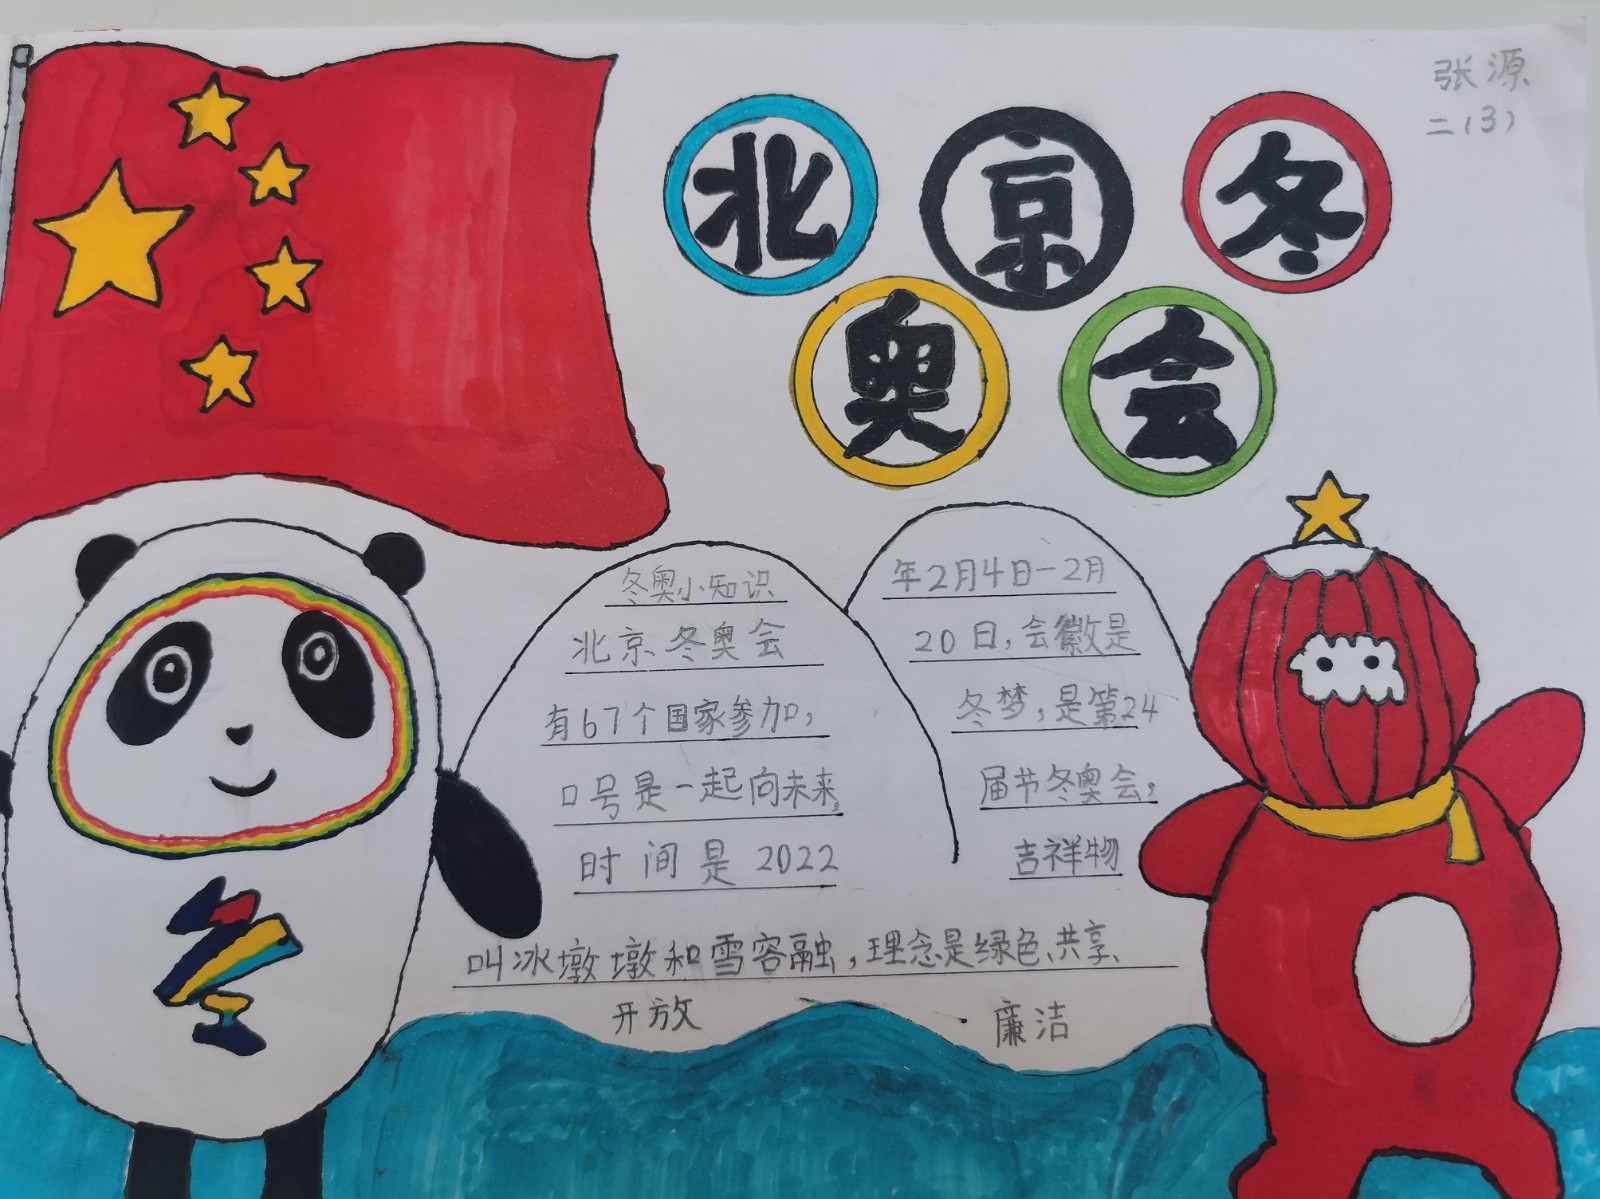 张源
二(3)
北京冬
奥会
冬奥小知识
北京冬奥会
有67个国家参加,
口号是一起向未来,
时间是2022
年2月4日-2月
20日,会徽是
冬梦,是第24
届节冬奥会,
吉祥物
叫冰墩墩和雪容融,理念是绿色、共享、
开放 廉洁